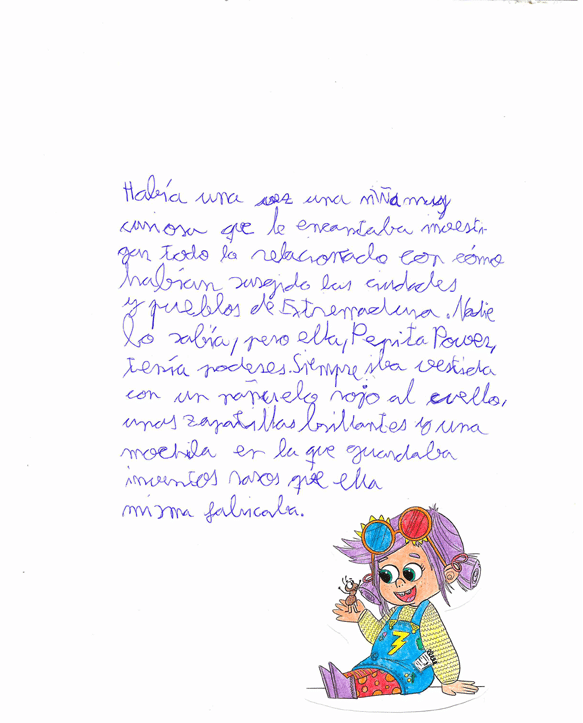 Había una vez una niña muy
curiosa que le encantaba investi-
gar todo lo relacionado con cómo
habían surgido las ciudades
y pueblos de Extremadura. Nadie
lo sabía, pero ella, Pepita Power,
tenía poderes. Siempre iba vestida
con un pañuelo rojo al cuello,
unas zapatillas brillantes y una
mochila en la que guardaba
inventos raros que ella
misma fabricaba.